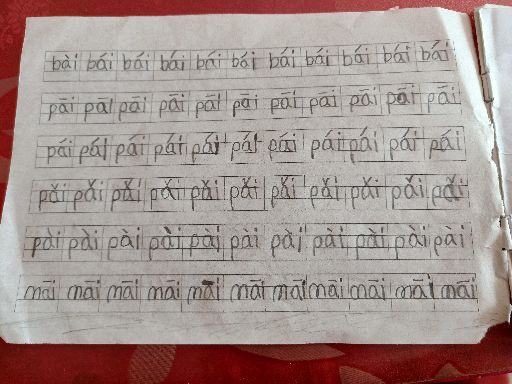 bài bái bái bái bái bái bái bái bái bái bái
pāi pāi pāi pāi pāi pāi pāi pāi pāi pāi pāi
pái pái pái pái pái pái pái pái pái pái pái
pǎi pǎi pǎi pǎi pǎi pǎi pǎi pǎi pǎi pǎi pǎi
pài pài pài pài pài pài pài pài pài pài pài
māi māi māi māi māi māi māi māi māi māi māi